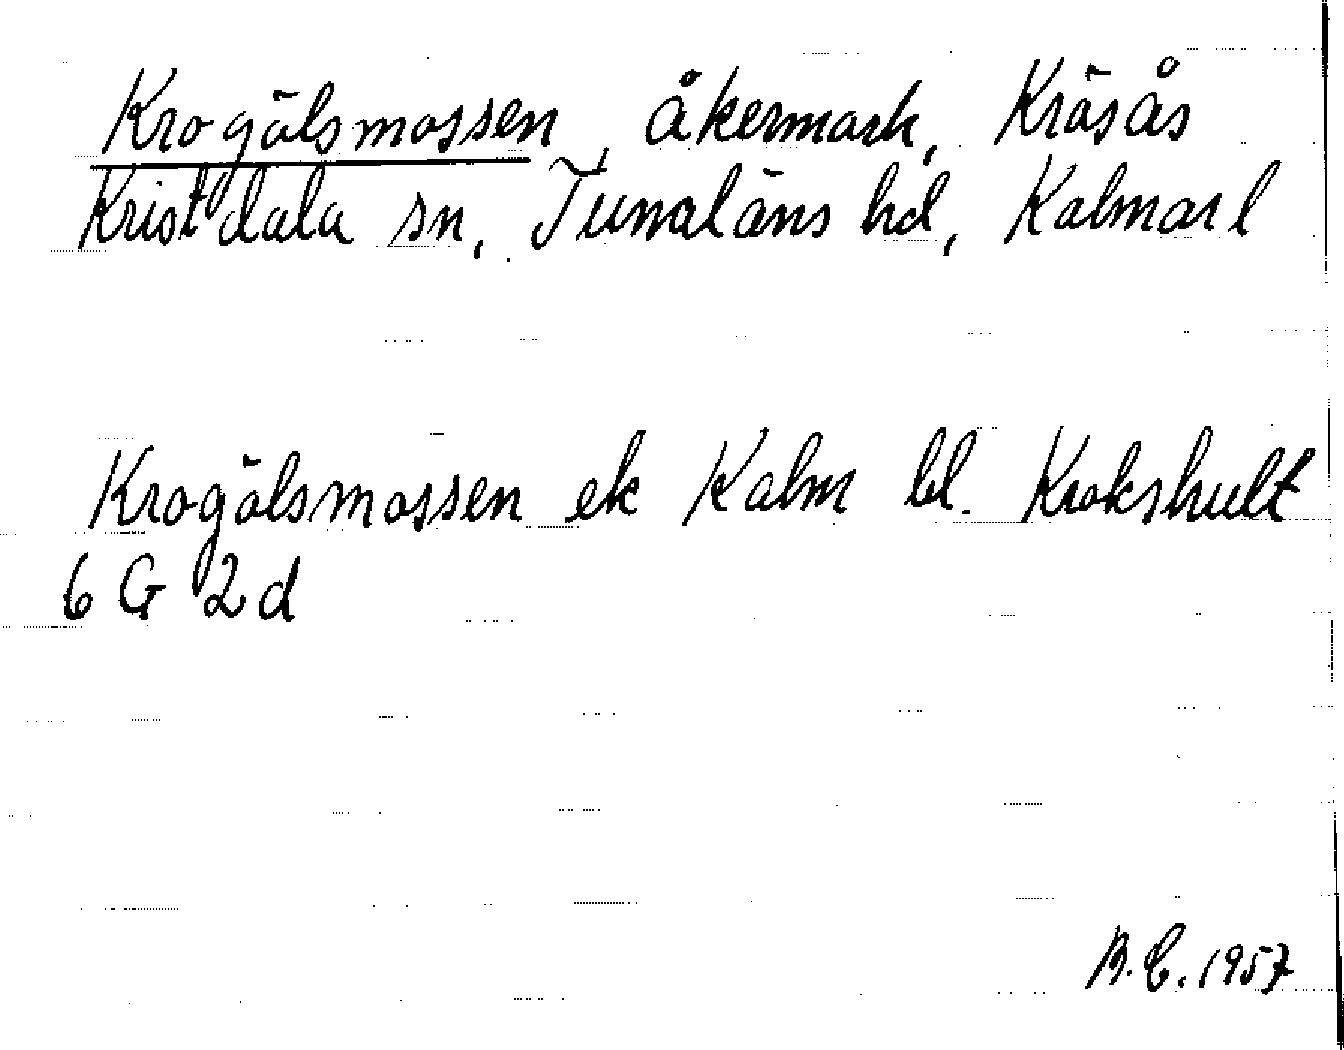 Krogölsmossen, åkermark, Kräsås
Kristdala sn, Tunaläns hd, Kalmar l
Krogölsmossen ek Kalm bl. Krokshult
6 G 2 d
B.E. 1957